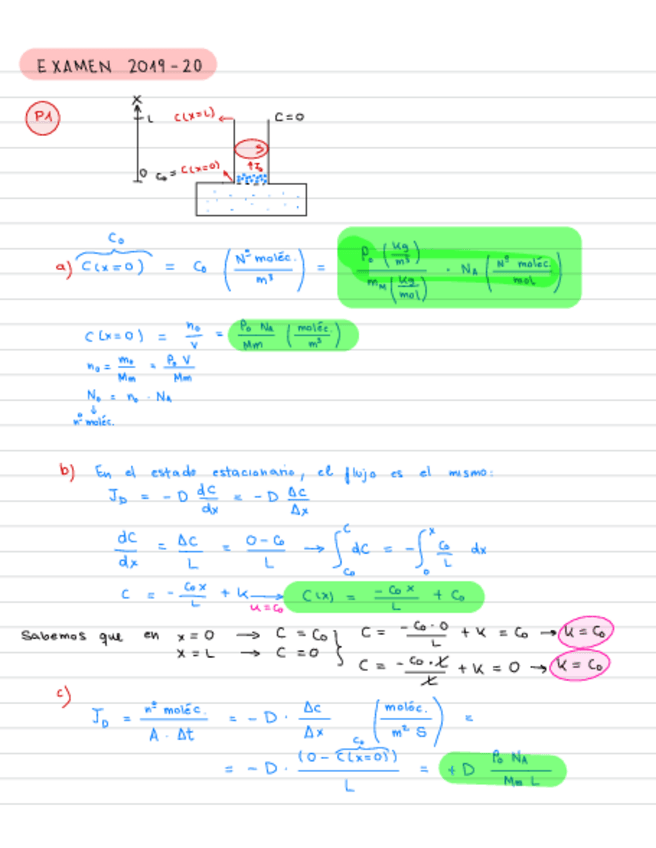 EXAMEN 2019-20
P1
X
L
C(x=L) ←
C=0
S
↑J₀
0 C₀ = C(x=0)
C₀
a) C(x=0) = C₀ (Nº moléc. / m³) = ρ₀ (kg / m³) / m_M (kg / mol) · N_A (Nº moléc. / mol)
C(x=0) = n₀ / V = ρ₀ N_A / Mm (moléc. / m³)
n₀ = m₀ / Mm = ρ₀ V / Mm
N₀ = n₀ · N_A
↓
nº moléc.
b) En el estado estacionario, el flujo es el mismo:
J_D = - D dC / dx = - D ΔC / Δx
dC / dx = ΔC / L = 0 - C₀ / L → ∫_{C₀}^{C} dC = - ∫_{0}^{x} C₀ / L dx
C = - C₀x / L + K → C(x) = - C₀x / L + C₀
K = C₀
Sabemos que en x = 0 → C = C₀ } C = - C₀ · 0 / L + K = C₀ → K = C₀
x = L → C = 0 } C = - C₀ · L / L + K = 0 → K = C₀
c) J_D = nº moléc. / A · Δt = - D · ΔC / Δx (moléc. / m² s) =
C₀
= - D · (0 - C(x=0)) / L = + D ρ₀ N_A / Mm L